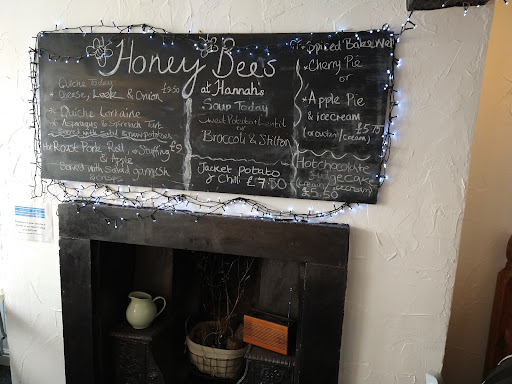 Honey Bees
at Hannah's
Quiche Today
* Cheese, Leek & Onion £9.50
*
Quiche Lorraine
* Asparagus & Spinach Tart
Served with salad & new potatoes
* Roast Pork Roll, Stuffing £9
& Apple
Served with Salad garnish
& crisps
Soup Today
Sweet Potato & Lentil
or
Broccoli & Stilton
Jacket Potato
& Chilli £7.00
* Spiced Bakewell
* Cherry Pie
or
* Apple Pie
& icecream
(or custard/cream) £5.75
Hot chocolate
fudge cake
(cream/icecream)
£5.50